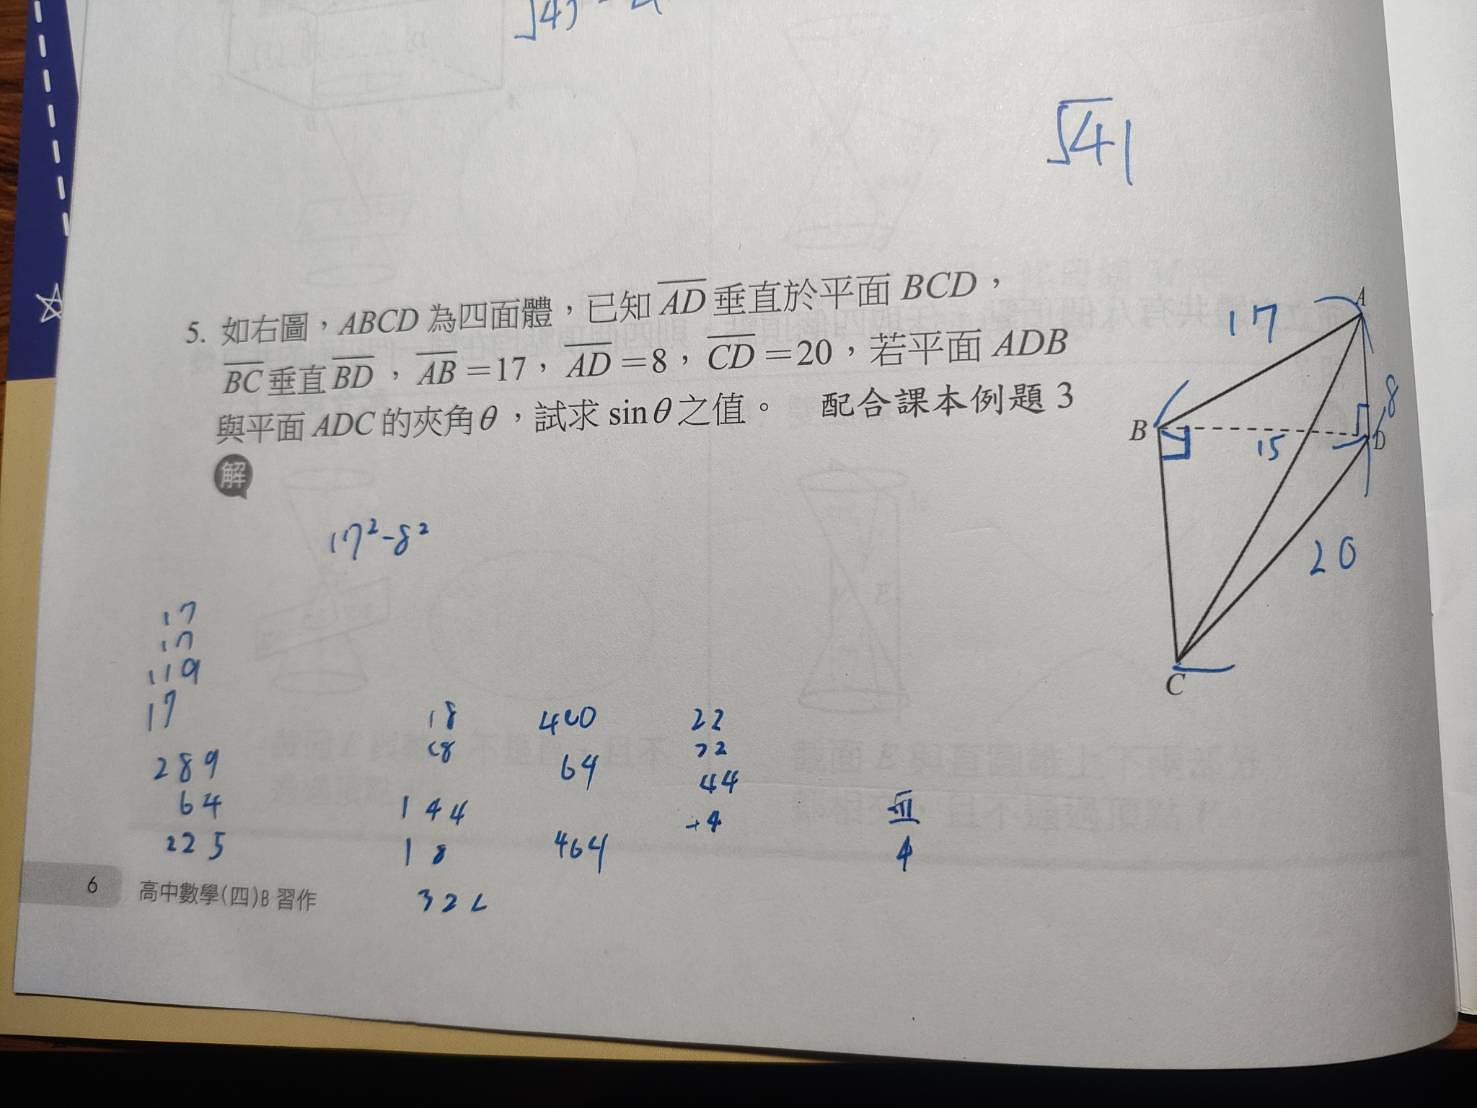 √41
5. 如右圖，ABCD 為四面體，已知 AD 垂直於平面 BCD，
BC 垂直 BD，AB = 17，AD = 8，CD = 20，若平面 ADB
與平面 ADC 的夾角 θ，試求 sin θ 之值。 配合課本例題 3
解
A
17
8
B
15
D
20
C
17²-8²
17
17
119
17
289
64
225
18
18
144
18
400
64
464
22
22
44
4
6 高中數學(四)B 習作